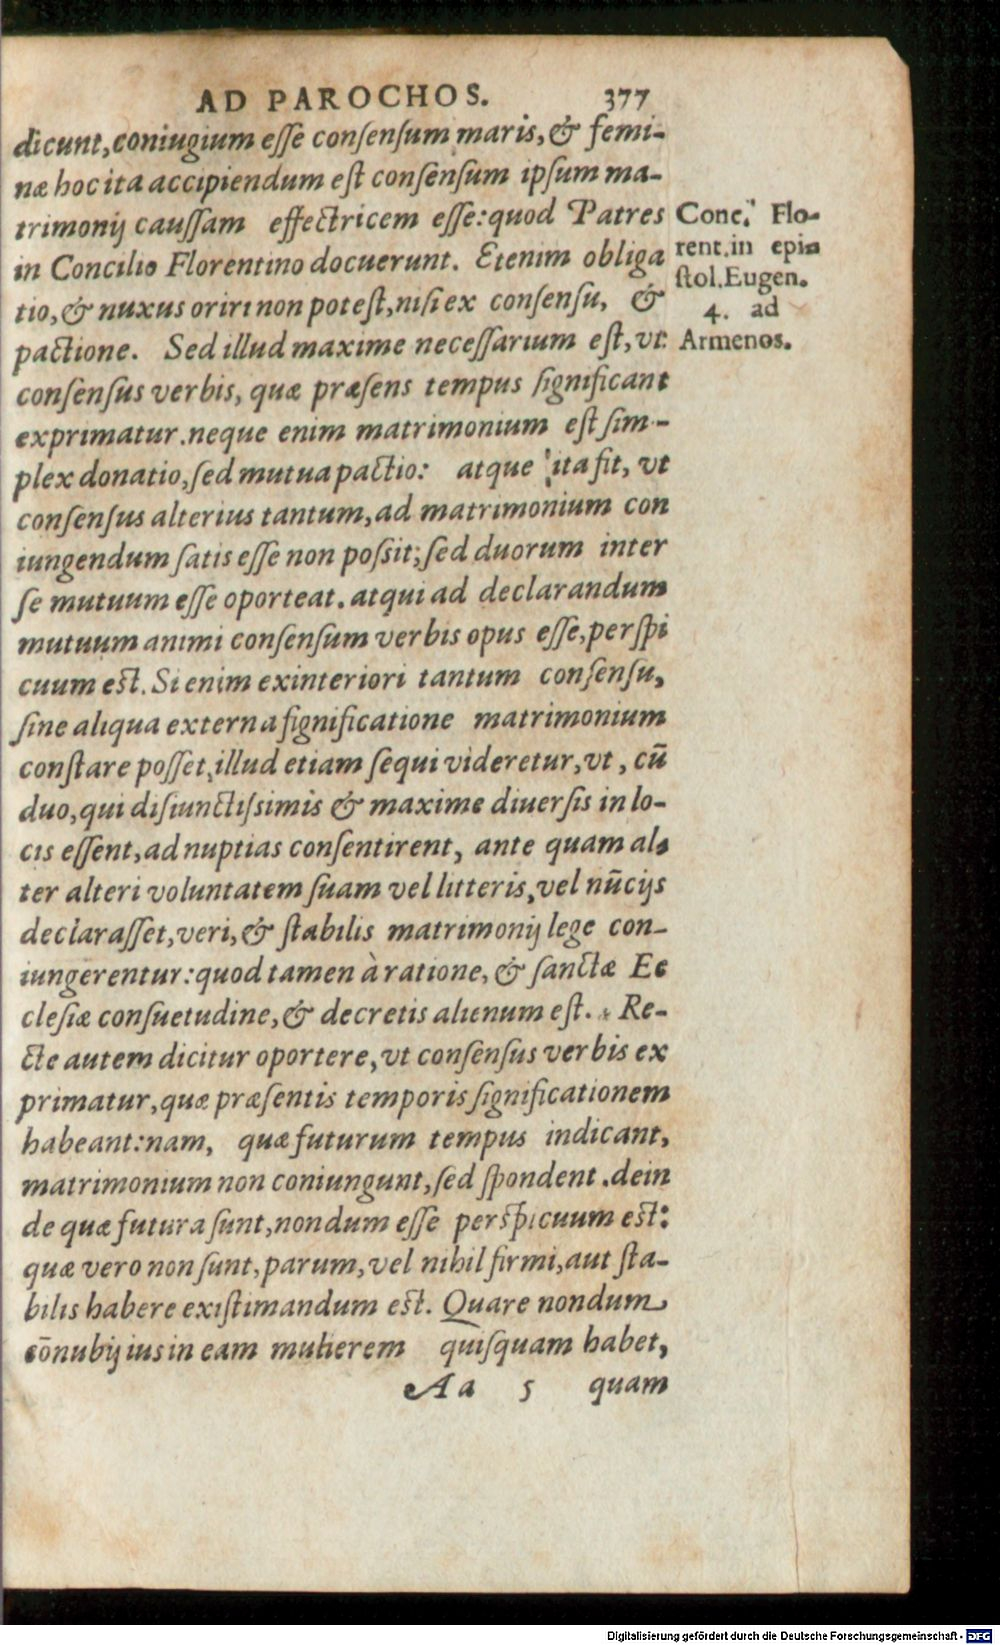 AD PAROCHOS. 377
dicunt, coniugium eſſe conſenſum maris, & femi-
næ hoc ita accipiendum eſt conſenſum ipſum ma-
trimonij cauſſam effectricem eſſe: quod Patres
in Concilio Florentino docuerunt. Etenim obliga
tio, & nuxus oriri non poteſt, niſi ex conſenſu, &
pactione. Sed illud maxime neceſſarium eſt, vt
conſenſus verbis, quæ præſens tempus ſignificant
exprimatur. neque enim matrimonium eſt ſim-
plex donatio, ſed mutua pactio: atque ita fit, vt
conſenſus alterius tantum, ad matrimonium con
iungendum ſatis eſſe non poſsit; ſed duorum inter
ſe mutuum eſſe oporteat. atqui ad declarandum
mutuum animi conſenſum verbis opus eſſe, perſpi
cuum eſt. Si enim ex interiori tantum conſenſu,
ſine aliqua externa ſignificatione matrimonium
conſtare poſſet, illud etiam ſequi videretur, vt, cū
duo, qui diſiunctiſsimis & maxime diuerſis in lo-
cis eſſent, ad nuptias conſentirent, ante quam al-
ter alteri voluntatem ſuam vel litteris, vel nūcijs
declaraſſet, veri, & ſtabilis matrimonij lege con-
iungerentur: quod tamen à ratione, & ſanctæ Ec
cleſiæ conſuetudine, & decretis alienum eſt. * Re-
cte autem dicitur oportere, vt conſenſus verbis ex
primatur, quæ præſentis temporis ſignificationem
habeant: nam, quæ futurum tempus indicant,
matrimonium non coniungunt, ſed ſpondent. dein
de quæ futura ſunt, nondum eſſe perſpicuum eſt:
quæ vero non ſunt, parum, vel nihil firmi, aut ſta-
bilis habere exiſtimandum eſt. Quare nondum
cōnubij ius in eam mulierem quiſquam habet,
Aa 5 quam
Conc. Flo-
rent. in epi-
ſtol. Eugen.
4. ad
Armenos.
Digitalisierung gefördert durch die Deutsche Forschungsgemeinschaft - DFG